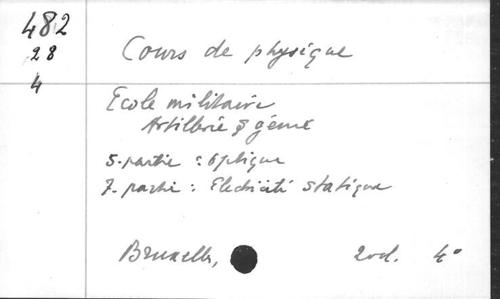 482
28
4
Cours de physique
Ecole militaire
Artillerie & génie
5. partie : Optique
7. partie : Electricité statique
Bruxelles, 2 vol. 4°